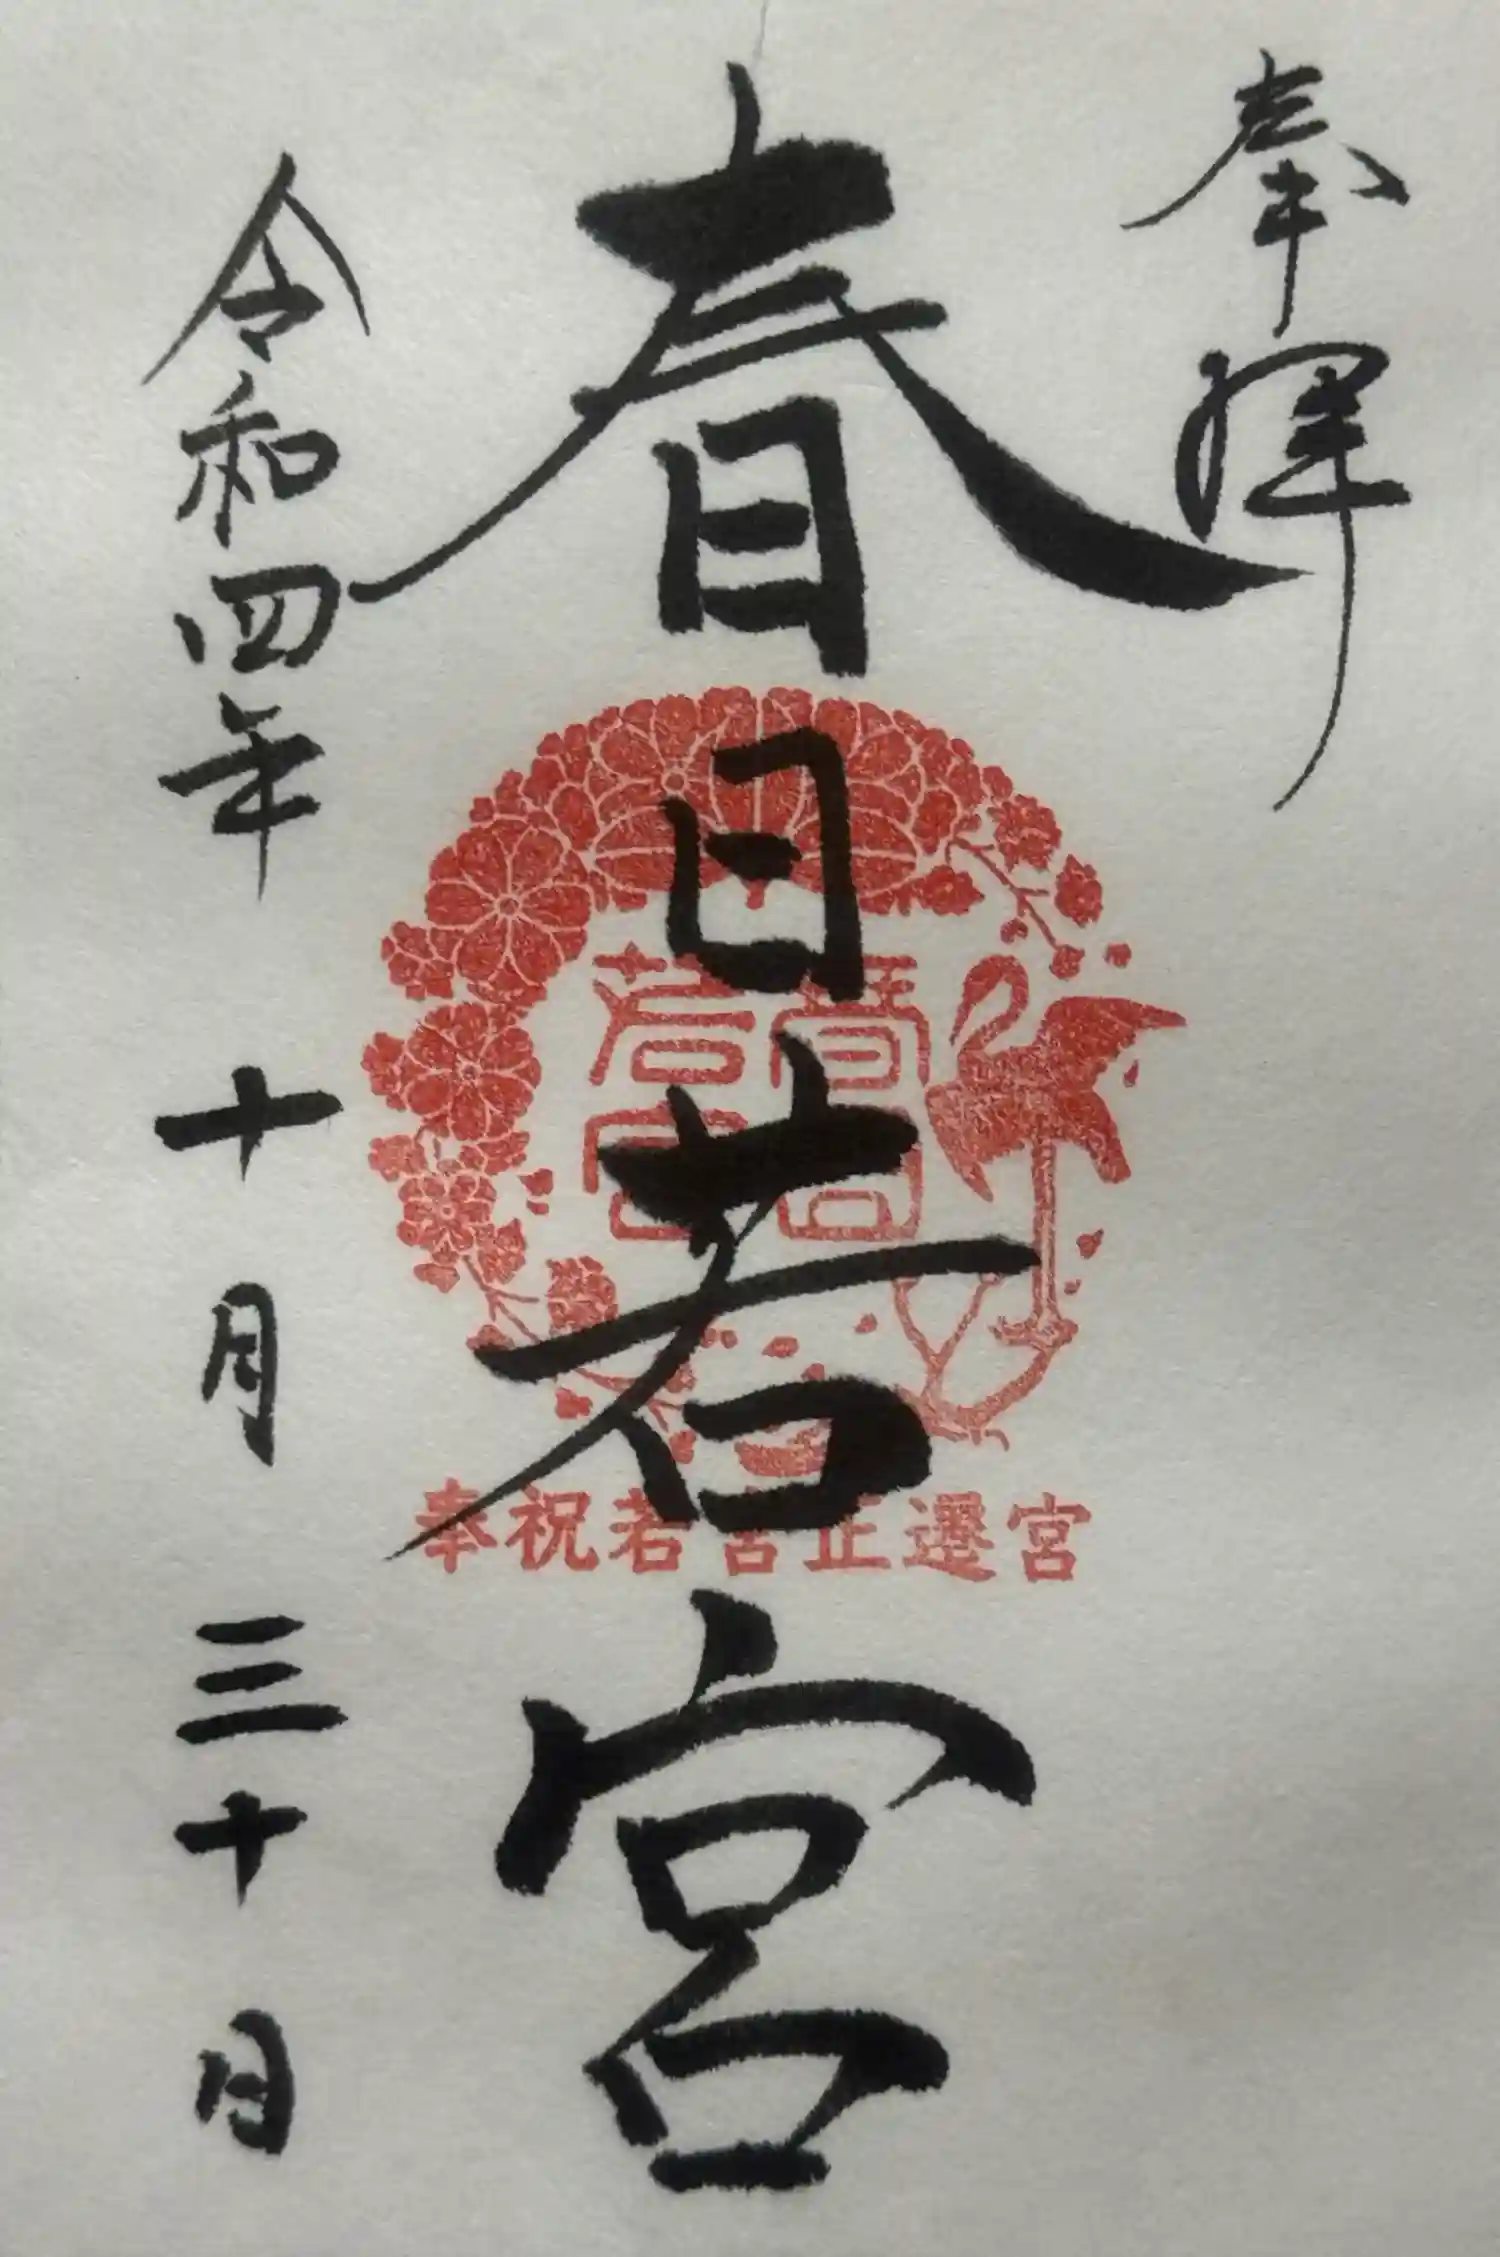 奉拝
春日若宮
令和四年 十月 三十日
奉祝若宮正遷宮